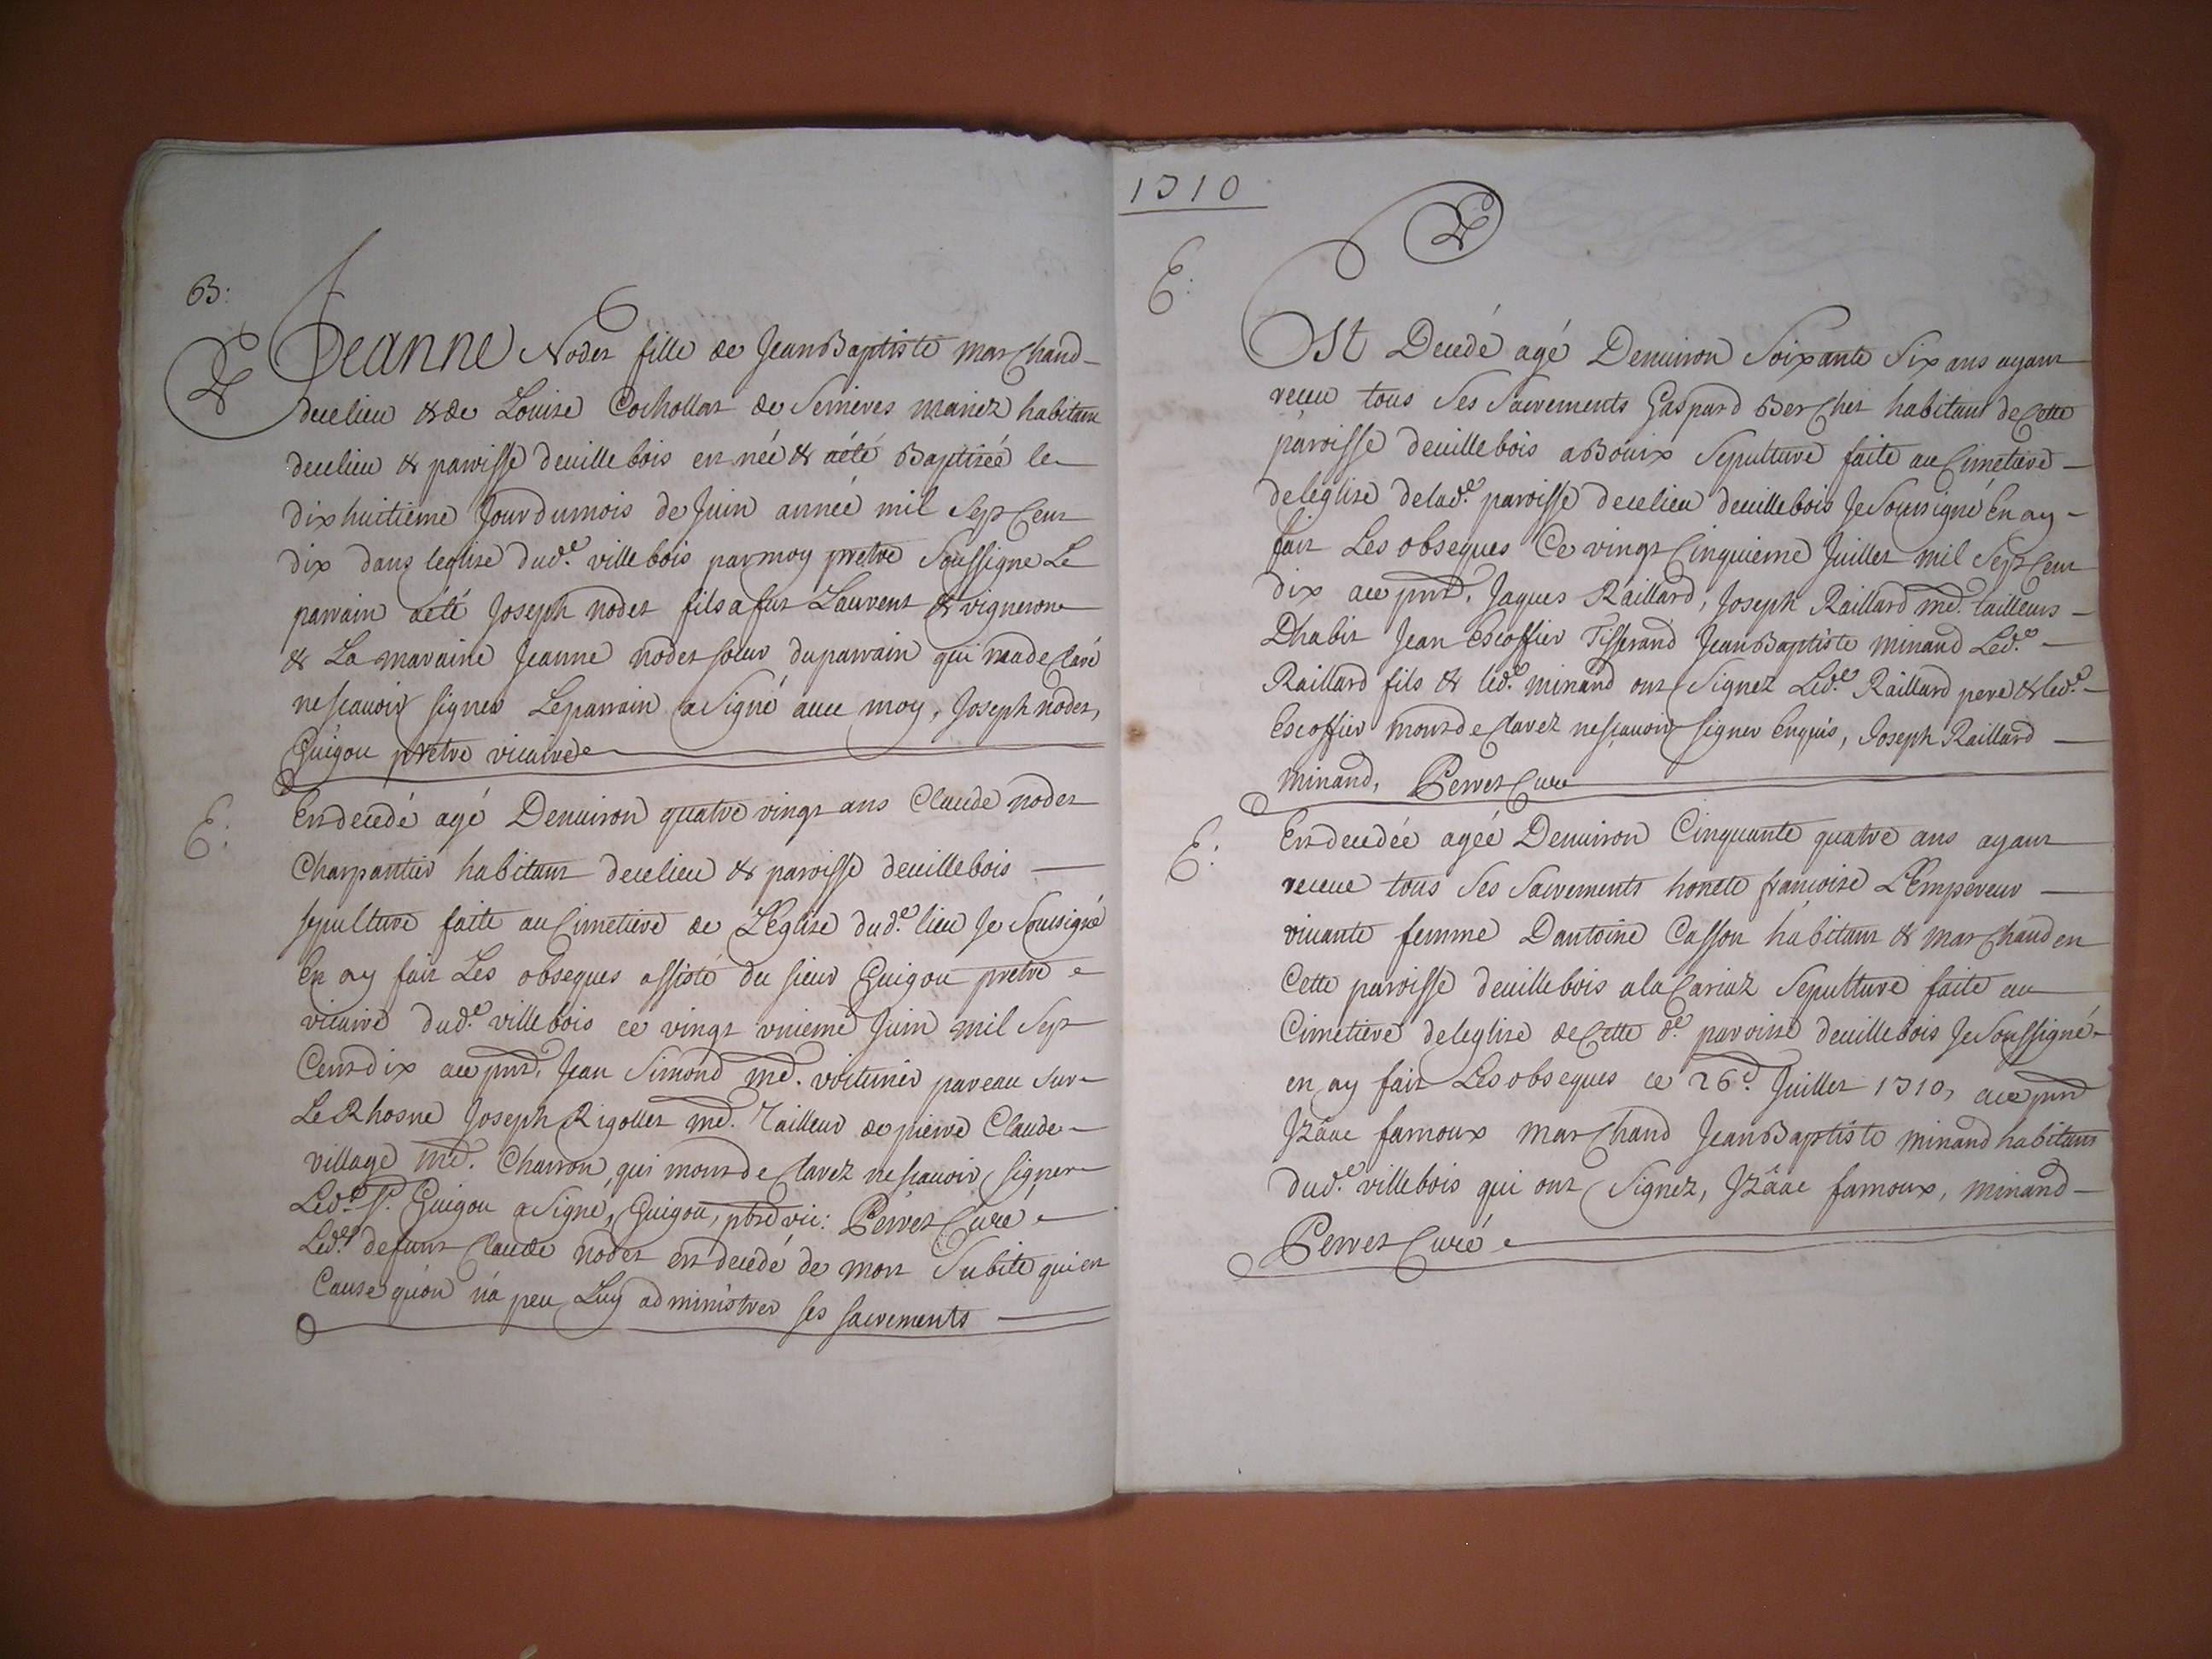 B:
Jeanne Nodet fille de Jean Baptiste marchand
decelieu & de Louise Cochollat de Serrieres mariez habitans
decelieu & paroisse deuillebois est née & aété Baptizée le
dixhuitieme Jour dumois de Juin année mil Sept Cent
dix dans leglise dud.e villebois parmoy pretre Soussigne Le
parrain aété Joseph nodet fils afut Laurent & vigneron
& La maraine Jeanne nodet soeur duparrain qui madeClaré
nesçauoir signer Leparrain aSigné auec moy, Joseph nodet,
Guigou pretre vicaire
E:
Est decedé agé Denuiron quatre vingt ans Claude nodet
Charpantier habitant decelieu & paroisse deuillebois
sepulture faite au Cimetiere de L'Eglise dud.e lieu Je Soussigné
En ay fait Les obseques assisté du sieur Guigou pretre
vicaire dud.e villebois ce vingt vnieme Juin mil Sept
Cent dix au pnt. Jean Simond md. voiturier pareau sur
Le Rhosne Joseph Rigollet md. Tailleur de pierre Claude
village md. Charron, qui mont deClarez nescauoir signer
Led.e Sr. Guigou aSigné, Guigou, pbre vic: Perret Curé
Led.e defunt Claude nodet est decedé de mort Subite qui est
Cause qu'on n'a peu Luy administrer ses sacrements
1710
E:
Est Decedé agé Denuiron Soixante Six ans ayant
receu tous Ses Sacrements Gaspard Berchet habitant deCette
paroisse deuillebois aBouix Sepulture faite au Cimetiere
deleglise delad.e paroisse decelieu deuillebois Je Soussigné En ay
fait Les obseques Ce vingt Cinquieme Juillet mil Sept Cent
dix au pnt. Jaques Raillard, Joseph Raillard md. tailleurs
Dhabit Jean Escoffier Tisserand Jean Baptiste minand Led.e
Raillard fils & led.e minand ont Signez Led.e Raillard pere & led.e
Escoffier mont deClarez nesçauoir signer Enquis, Joseph Raillard
minand, Perret Curé
E:
Est decedée agée Denuiron Cinquante quatre ans ayant
receue tous Ses Sacrements honete françoise L'Empereur
viuante femme Dantoine Casson habitant & marChand en
Cette paroisse deuillebois ala Cariaz Sepulture faite au
Cimetiere deleglise deCette d.e paroisse deuillebois Je Soussigné
en ay fait Les obseques ce 26e. Juillet 1710, au pnt
Izâac famoux marChand Jean Baptiste minand habitans
dud.e villebois qui ont Signez, Izâac famoux, minand
Perret Curé